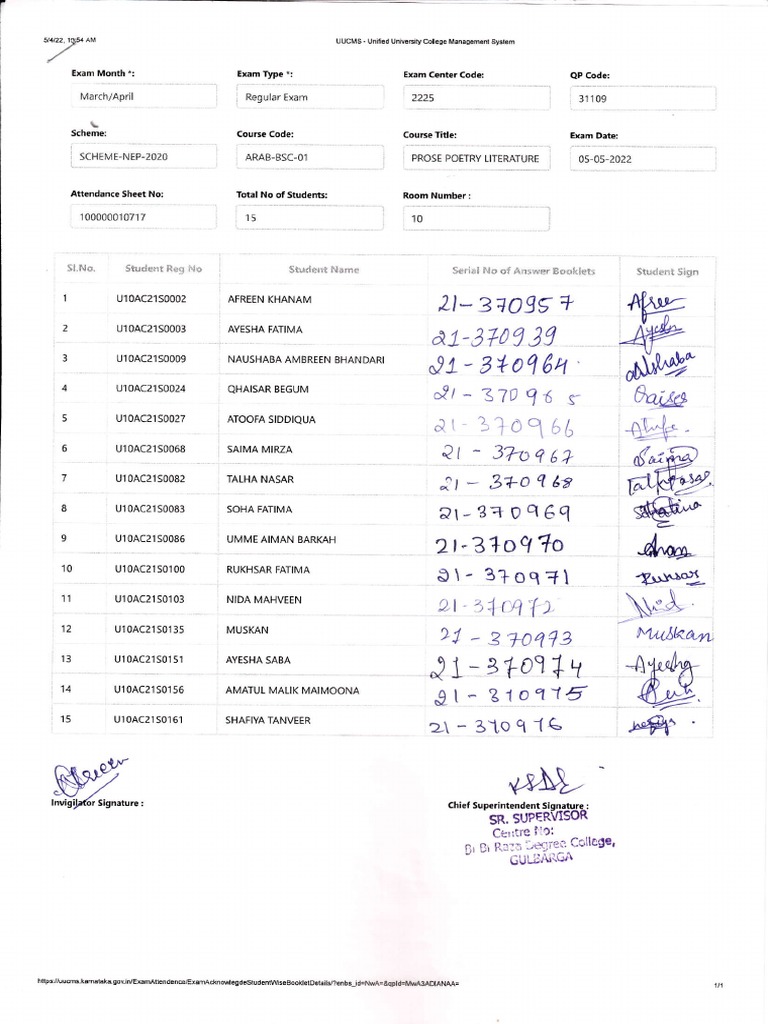 5/4/22, 10:54 AM UUCMS - Unified University College Management System
Exam Month *: Exam Type *: Exam Center Code: QP Code:
March/April Regular Exam 2225 31109
Scheme: Course Code: Course Title: Exam Date:
SCHEME-NEP-2020 ARAB-BSC-01 PROSE POETRY LITERATURE 05-05-2022
Attendance Sheet No: Total No of Students: Room Number :
100000010717 15 10
Sl.No. Student Reg No Student Name Serial No of Answer Booklets Student Sign
1 U10AC21S0002 AFREEN KHANAM 21-370957 Afree
2 U10AC21S0003 AYESHA FATIMA 21-370939 Ayesha
3 U10AC21S0009 NAUSHABA AMBREEN BHANDARI 21-370964
4 U10AC21S0024 QHAISAR BEGUM 21-370965
5 U10AC21S0027 ATOOFA SIDDIQUA 21-370966
6 U10AC21S0068 SAIMA MIRZA 21-370967 Saima
7 U10AC21S0082 TALHA NASAR 21-370968
8 U10AC21S0083 SOHA FATIMA 21-370969
9 U10AC21S0086 UMME AIMAN BARKAH 21-370970
10 U10AC21S0100 RUKHSAR FATIMA 21-370971 Ruhsar
11 U10AC21S0103 NIDA MAHVEEN 21-370972
12 U10AC21S0135 MUSKAN 21-370973 MUSKAN
13 U10AC21S0151 AYESHA SABA 21-370974
14 U10AC21S0156 AMATUL MALIK MAIMOONA 21-370975
15 U10AC21S0161 SHAFIYA TANVEER 21-370976
Invigilator Signature : Chief Superintendent Signature :
SR. SUPERVISOR
Centre No:
Bi Bi Raza Degree College,
GULBARGA
https://uucms.karnataka.gov.in/ExamAttendence/ExamAcknowlegdeStudentWiseBookletDetails/?enbs_id=NwA=&qpId=MwA3ADIANAA= 1/1